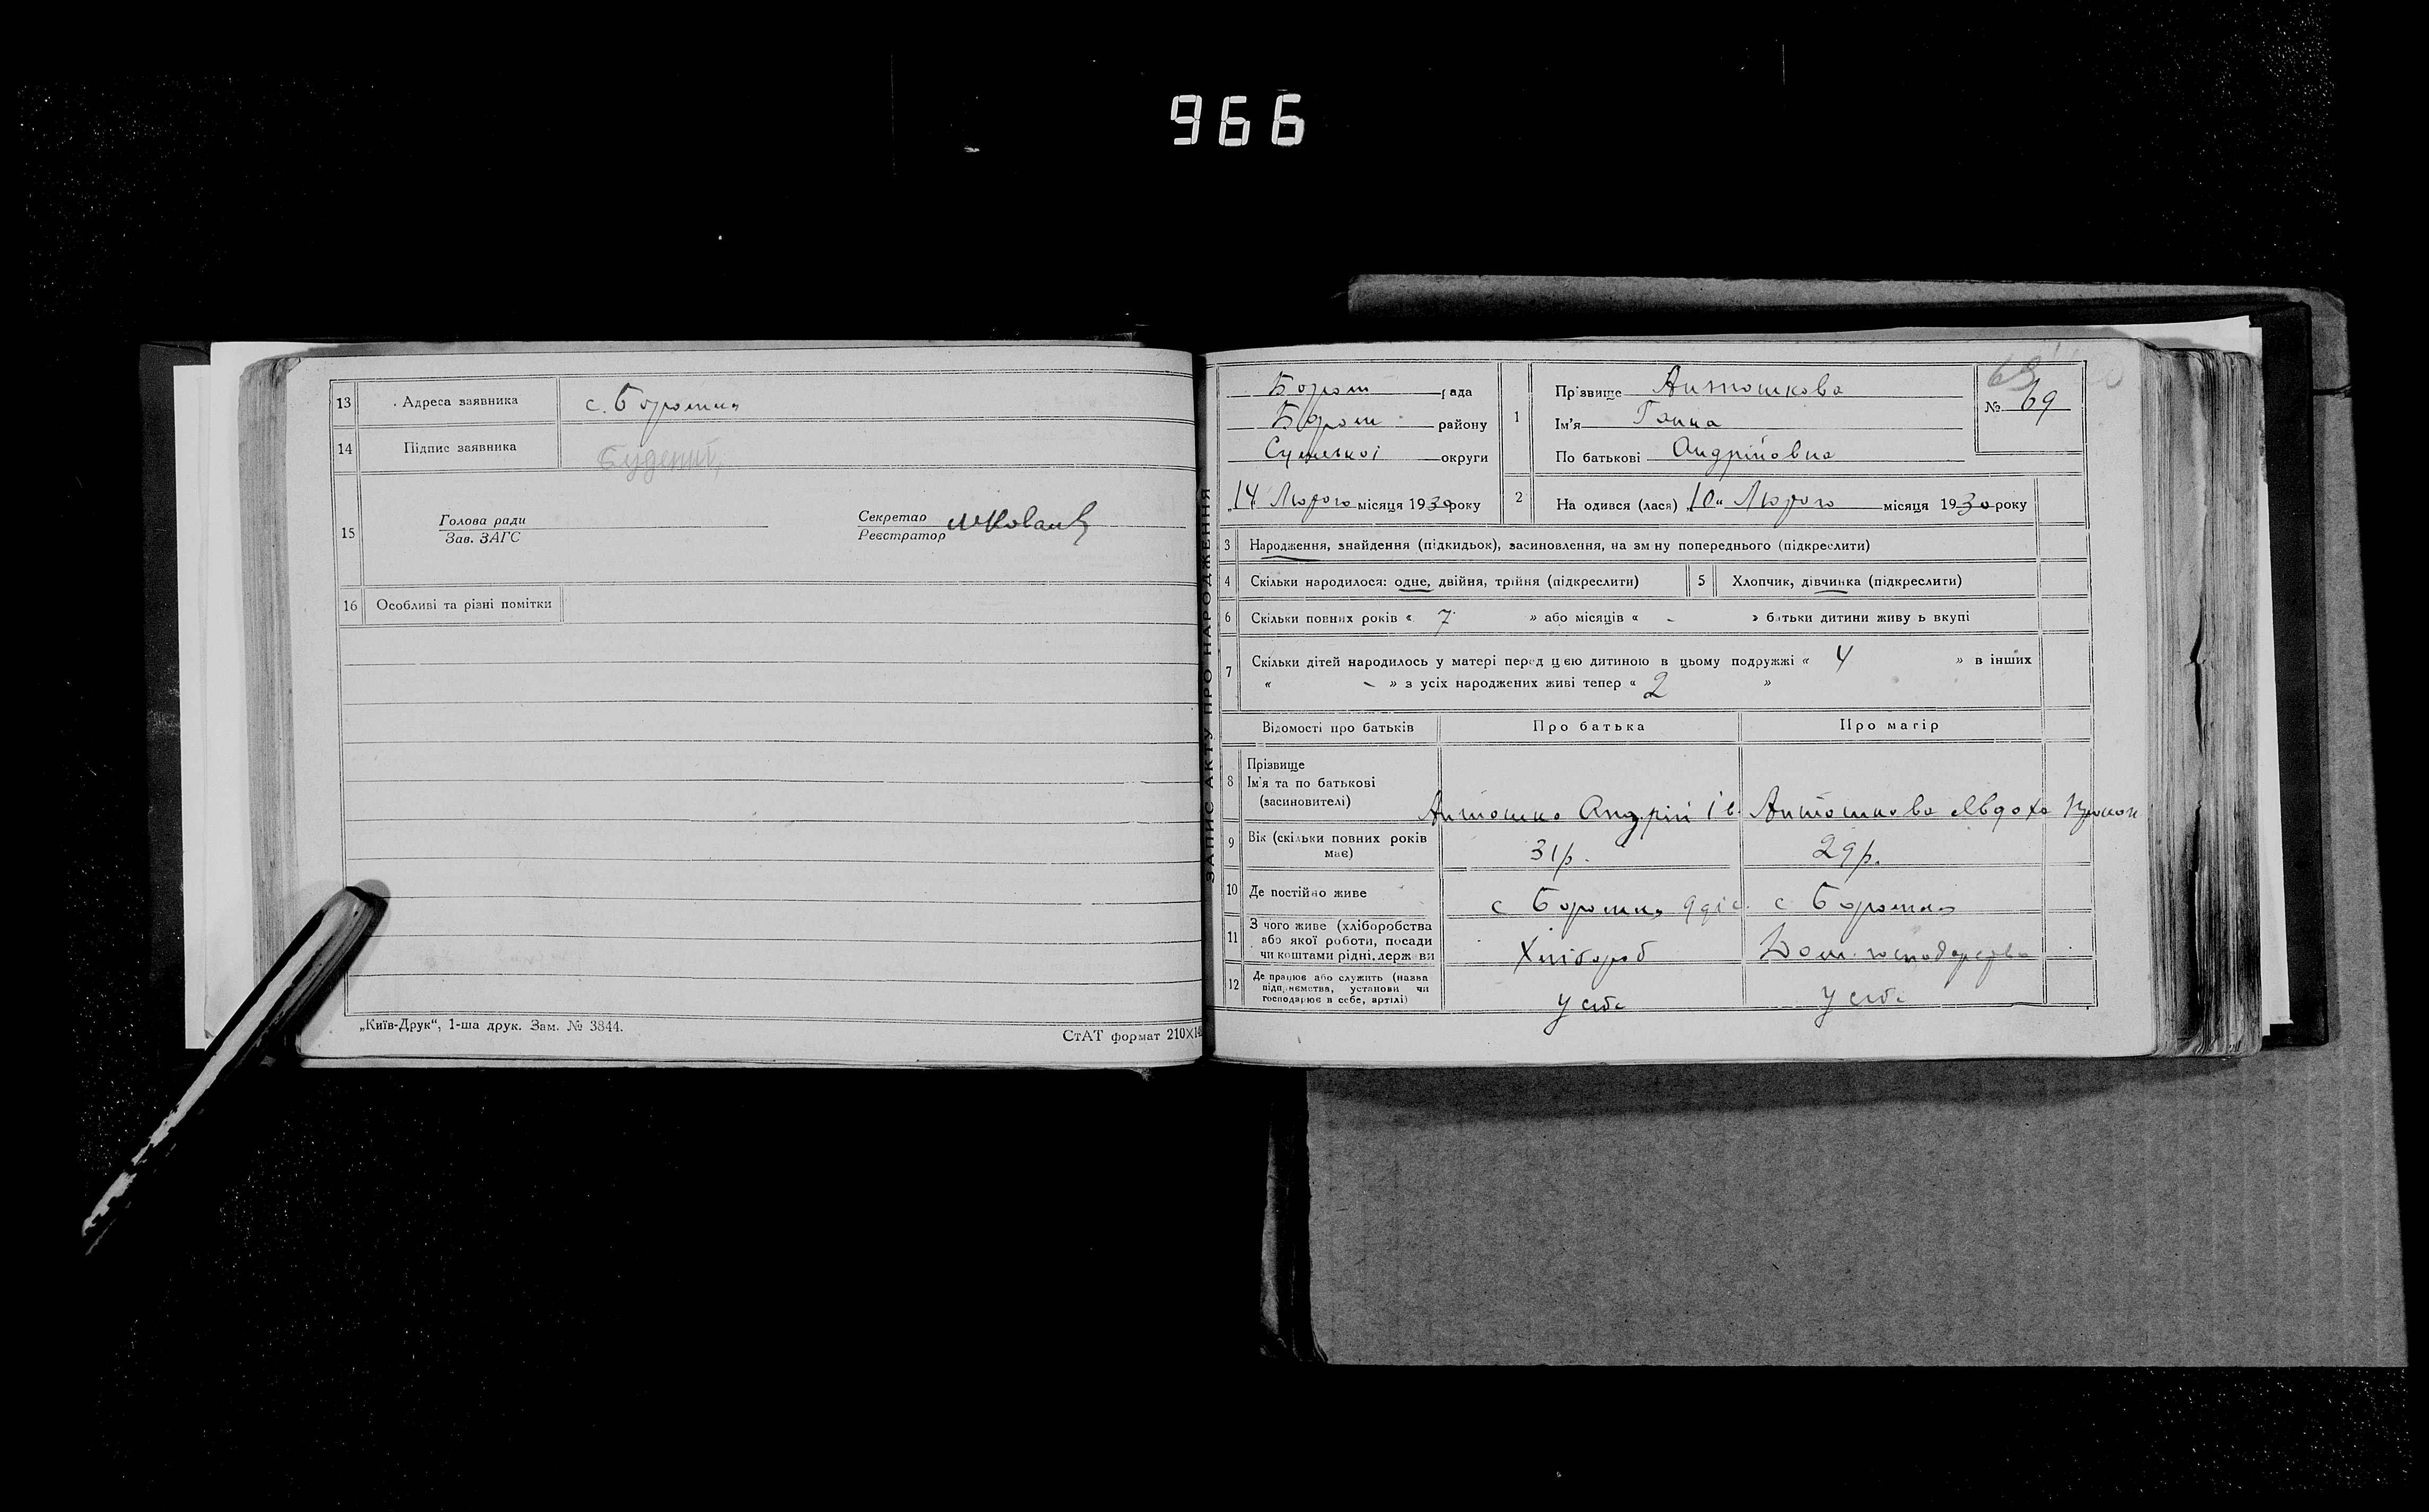 966
13 Адреса заявника с. Боромля
14 Підпис заявника
15 Голова ради
Зав. ЗАГС
Секретар
Реєстратор
16 Особливі та різні помітки
„Київ-Друк“, 1-ша друк. Зам. № 3844.
СтАТ формат 210×14
ЗАПИС АКТУ ПРО НАРОДЖЕННЯ
Боромл рада
Боромл району
Сумської округи
„14 Лютого місяця 1930 року
1 Прізвище Антошкова
Ім'я Ганна
По батькові Андріївна
69
№ 69
2 На одився (лася) „10“ Лютого місяця 1930 року
3 Народження, знайдення (підкидьок), засиновлення, на зм ну попереднього (підкреслити)
4 Скільки народилося: одне, двійня, трійня (підкреслити)
5 Хлопчик, дівчинка (підкреслити)
6 Скільки повних років « 7 » або місяців « - » батьки дитини живу ь вкупі
7 Скільки дітей народилось у матері перед цією дитиною в цьому подружжі « 4 » в інших
« - » з усіх народжених живі тепер « 2 »
Відомості про батьків Про батька Про матір
8 Прізвище
Ім'я та по батькові
(засиновителі)
Антошко Андрій Ів. Антошкова Явдоха Прокоп
9 Вік (скільки повних років
має)
31 р. 29 р.
10 Де постійно живе с Боромля с Боромля
11 З чого живе (хліборобства
або якої роботи, посади
чи коштами рідні, держ ви
Хлібороб Дом. господарство
12 Де працює або служить (назва
підприємства, установи чи
господарює в себе, артілі)
У себе У себе